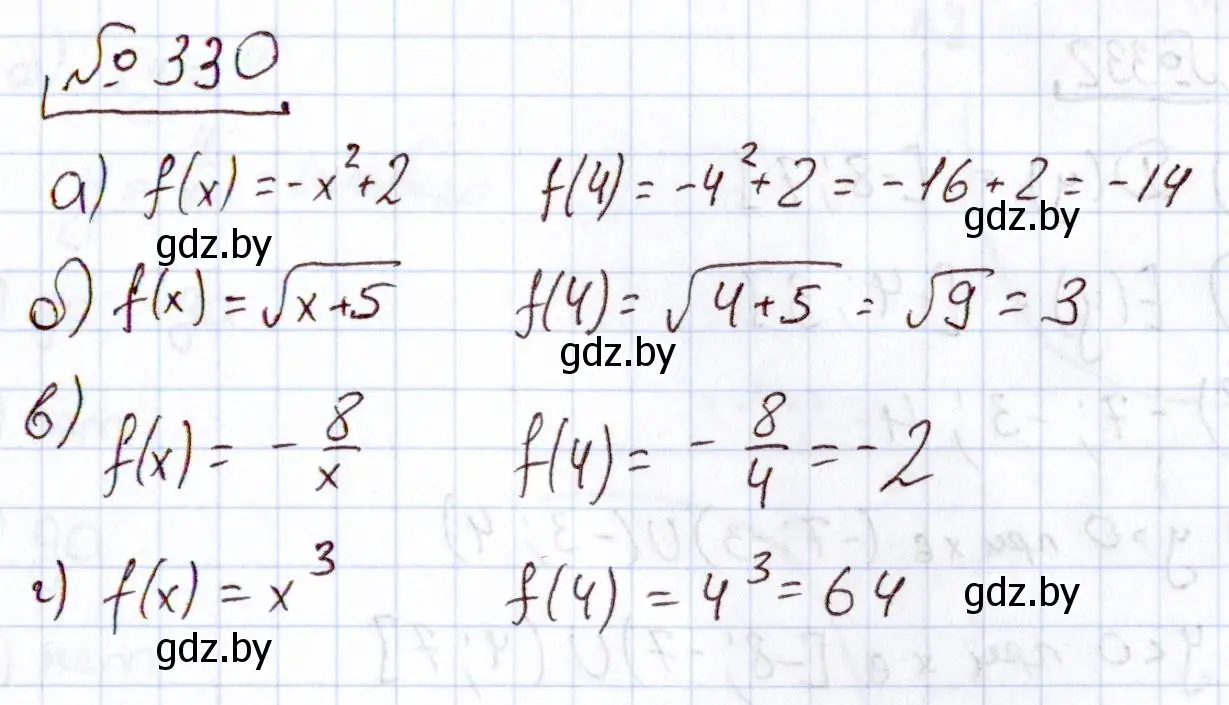 № 330
а) f(x) = -x²+2 f(4) = -4²+2 = -16+2 = -14
gdz.by gdz.by
б) f(x) = √(x+5) f(4) = √(4+5) = √9 = 3
gdz.by
в) f(x) = - 8/x f(4) = - 8/4 = -2
г) f(x) = x³ f(4) = 4³ = 64 gdz.by
gdz.by